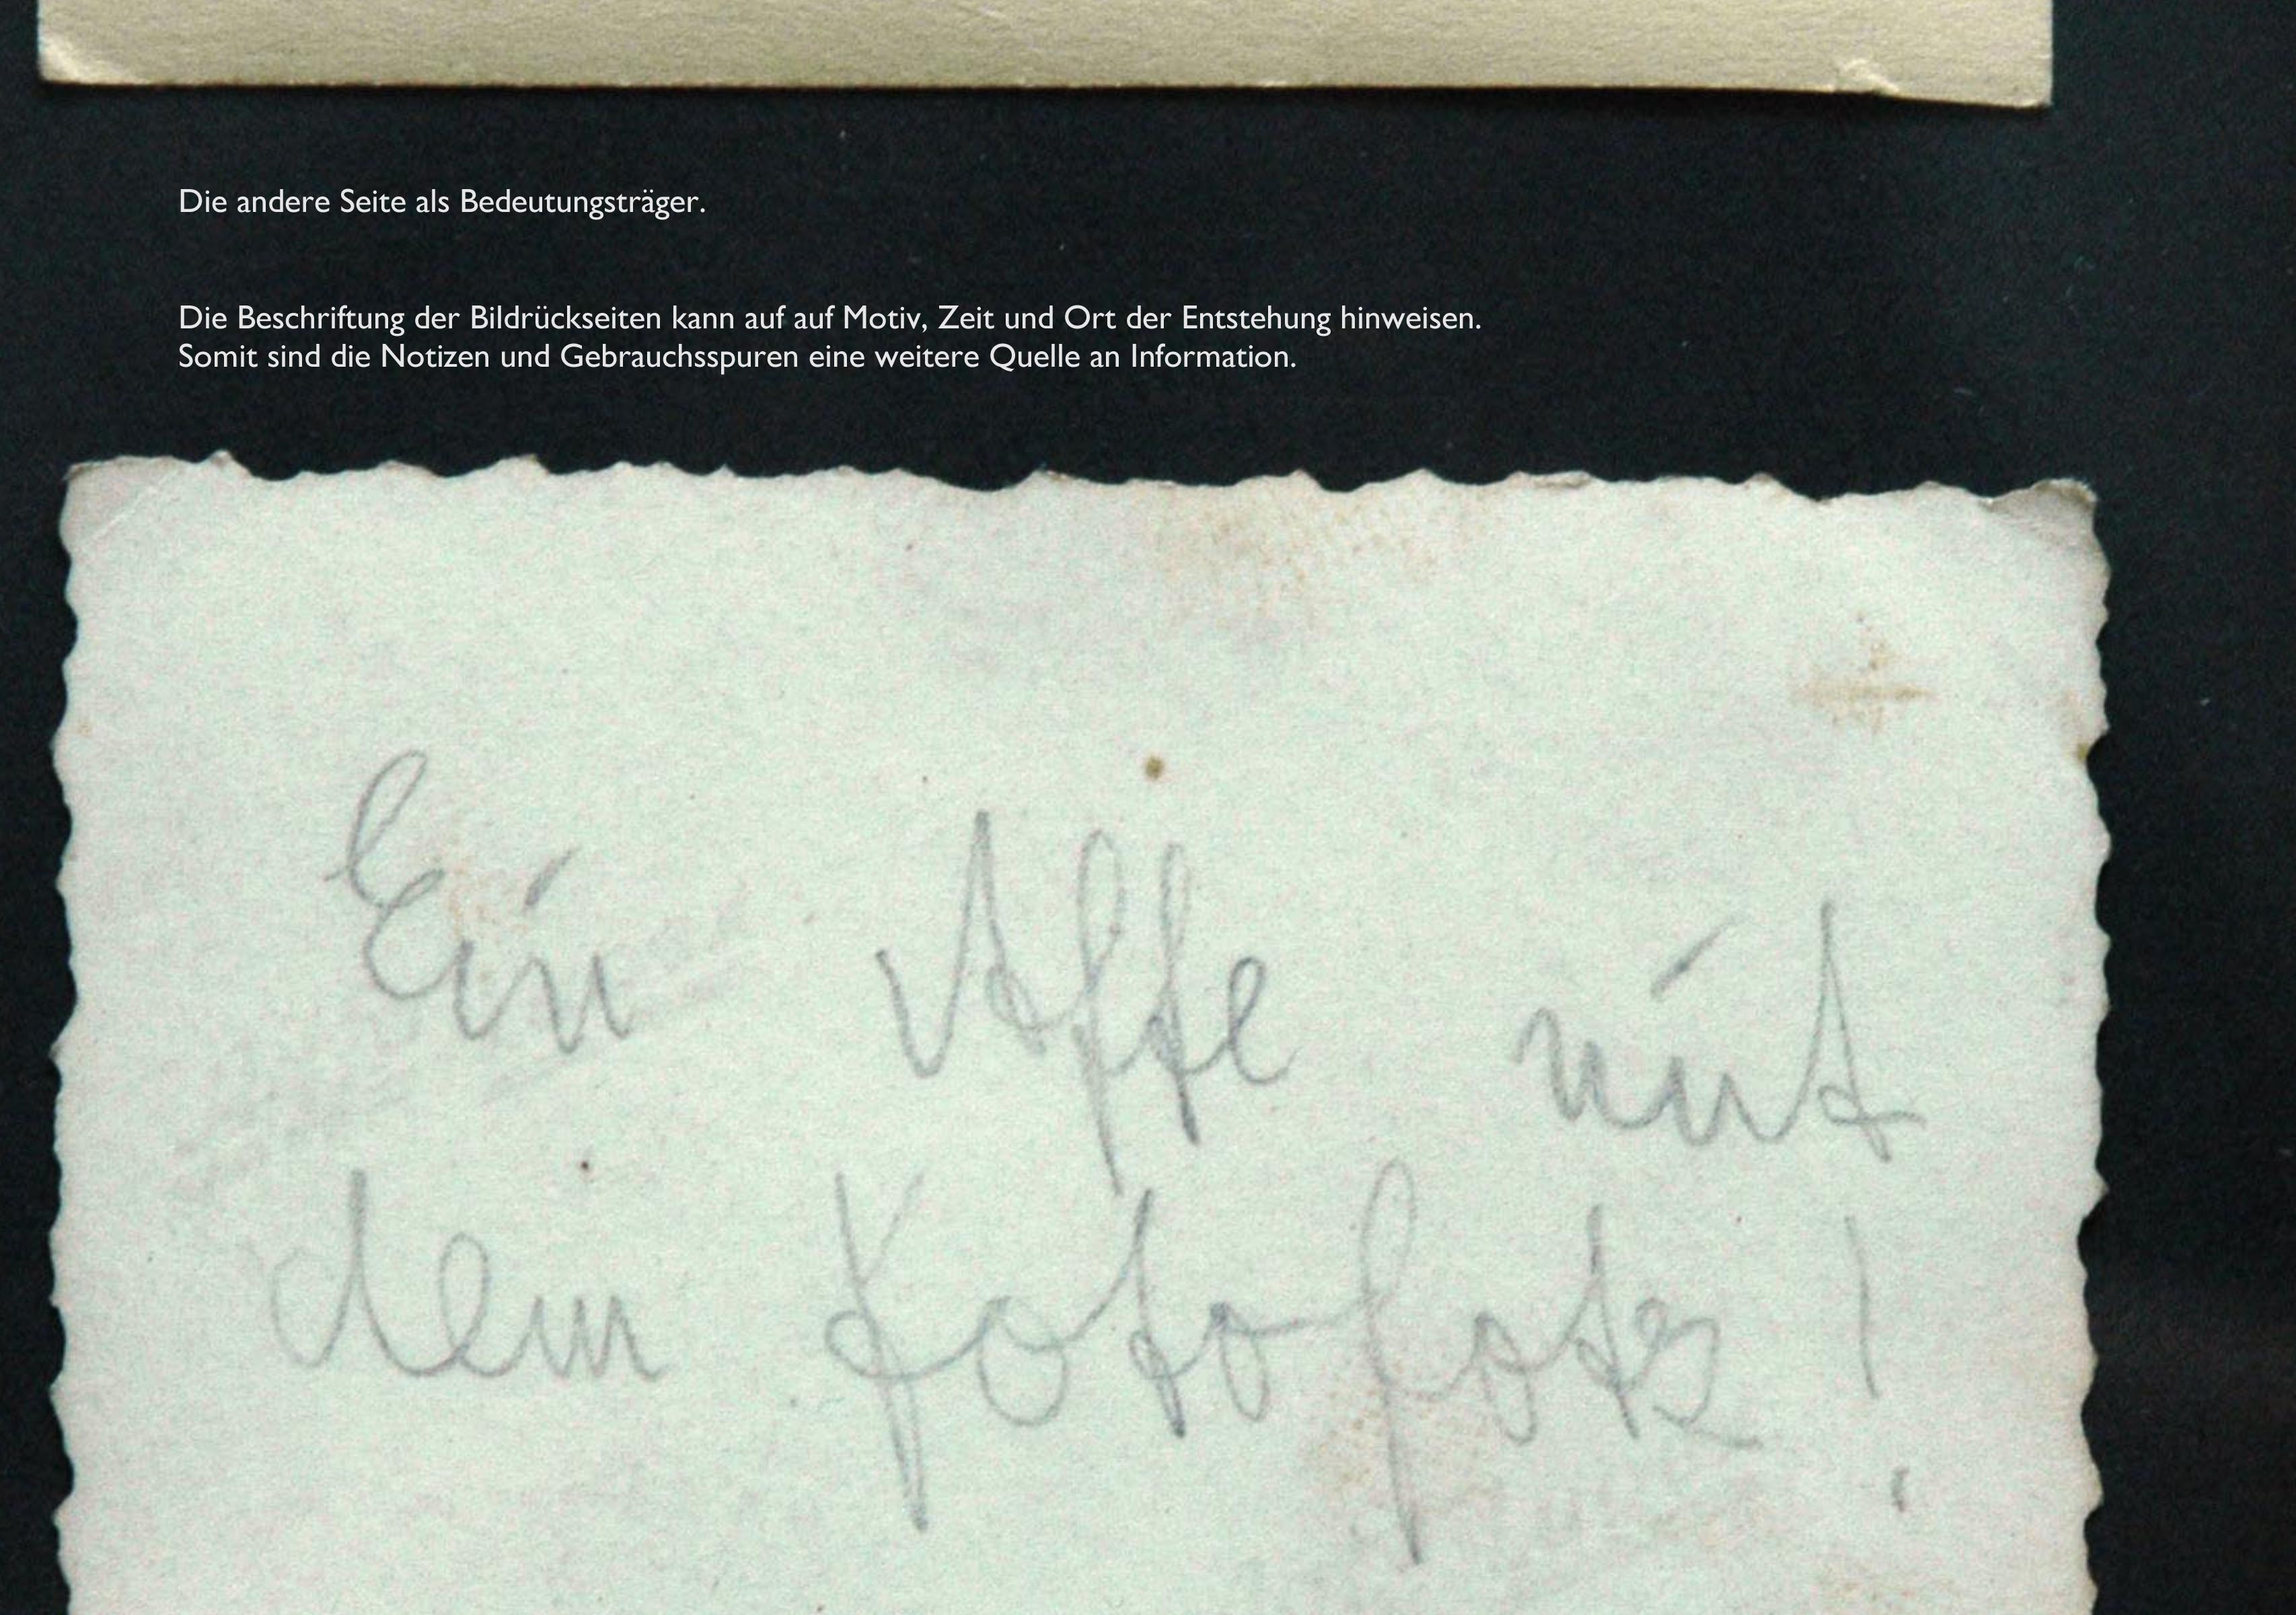 Die andere Seite als Bedeutungsträger.
Die Beschriftung der Bildrückseiten kann auf auf Motiv, Zeit und Ort der Entstehung hinweisen.
Somit sind die Notizen und Gebrauchsspuren eine weitere Quelle an Information.
Ein Affe mit
dem